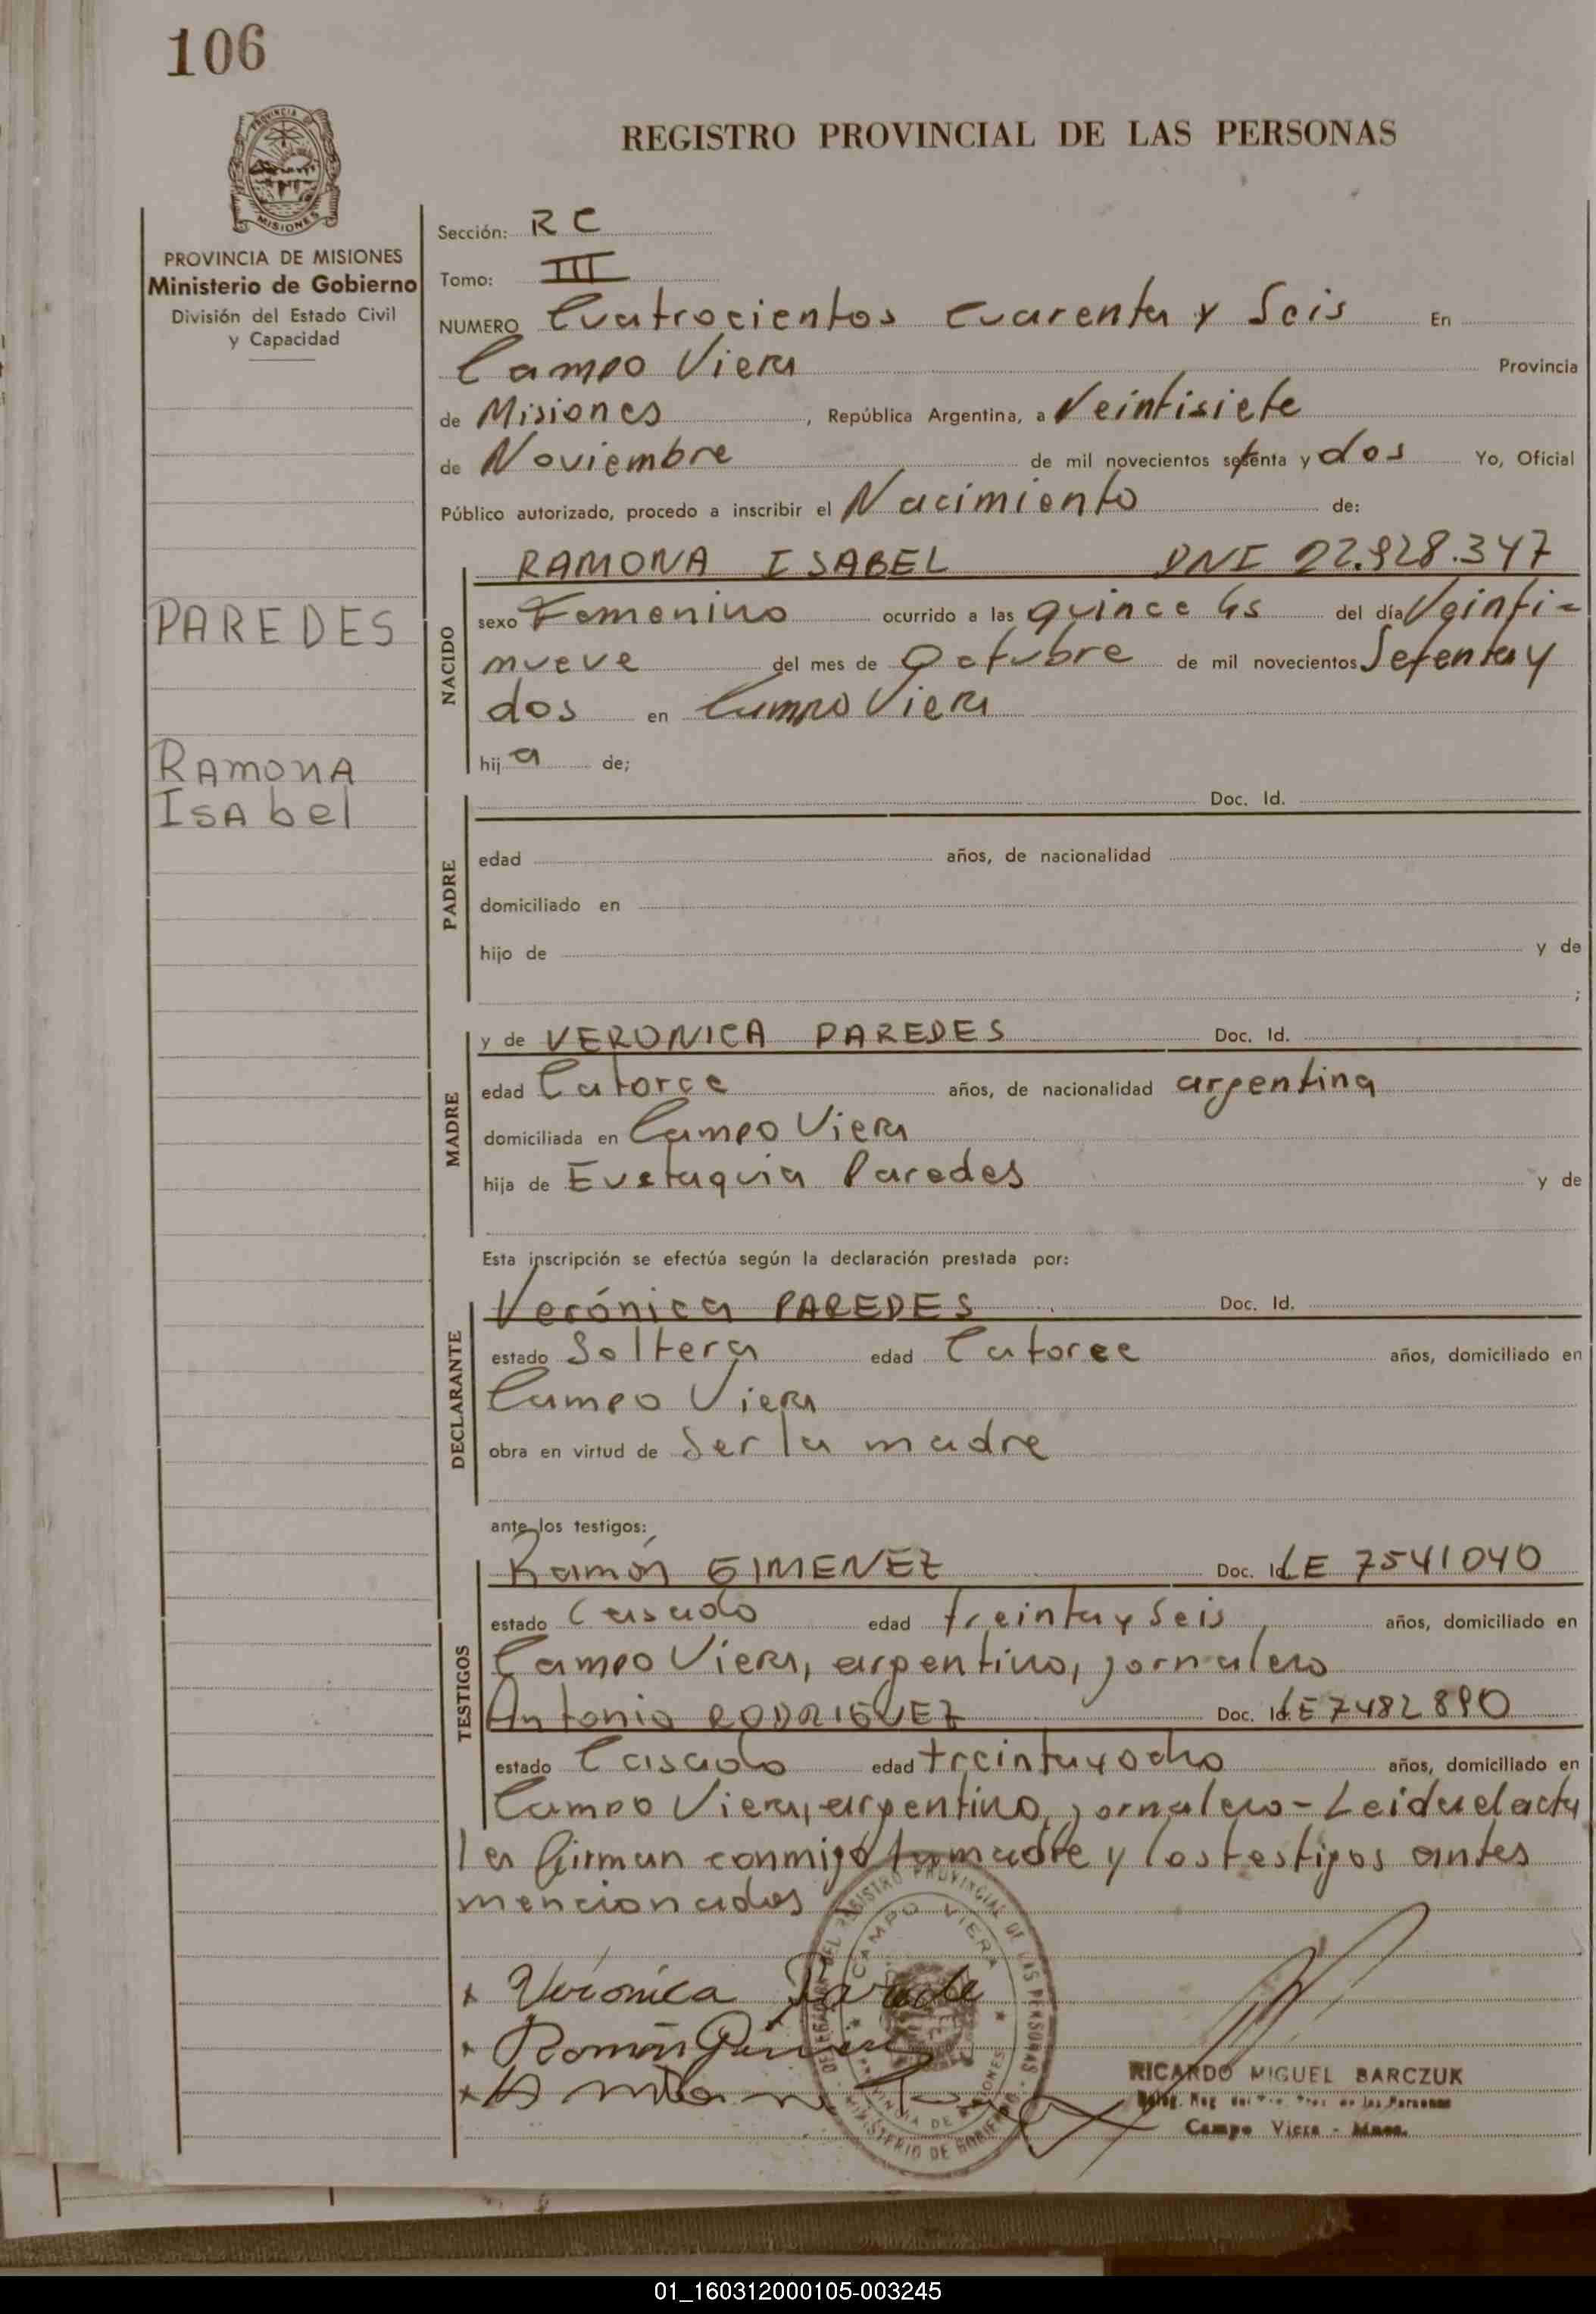 106
REGISTRO PROVINCIAL DE LAS PERSONAS
MISIONES
PROVINCIA DE MISIONES
Ministerio de Gobierno
División del Estado Civil
y Capacidad
PAREDES
RAmonA
IsAbel
Sección: R C
Tomo: III
NUMERO Cuatrocientos Cuarenta y Seis En
Campo Viera Provincia
de Misiones, República Argentina, a Veintisiete
de Noviembre de mil novecientos setenta y dos Yo, Oficial
Público autorizado, procedo a inscribir el Nacimiento de:
NACIDO
RAMONA ISABEL DNI 22.928.347
sexo Femenino ocurrido a las quince hs del día Veinti-
nueve del mes de Octubre de mil novecientos Setenta y
dos en Campo Viera
hij a de;
PADRE
Doc. Id.
edad años, de nacionalidad
domiciliado en
hijo de y de
;
MADRE
y de VERONICA PAREDES Doc. Id.
edad Catorce años, de nacionalidad argentina
domiciliada en Campo Viera
hija de Eustaquia Paredes y de
Esta inscripción se efectúa según la declaración prestada por:
DECLARANTE
Verónica PAREDES Doc. Id.
estado Soltera edad Catorce años, domiciliado en
Campo Viera
obra en virtud de Ser la madre
ante los testigos:
TESTIGOS
Ramón GIMENEZ Doc. Id. LE 7541040
estado Casado edad treinta y Seis años, domiciliado en
Campo Viera, argentino, jornalero
Antonio RODRIGUEZ Doc. Id. LE 7482890
estado Casado edad treinta y ocho años, domiciliado en
Campo Viera, argentino, jornalero - Leida el acta
la firman conmigo la madre y los testigos antes
mencionados
x Verónica Parede
x Ramón Gimenez
CAMPO VIERA
REGISTRO PROVINCIAL DE LAS PERSONAS
PROVINCIA DE MISIONES
MINISTERIO DE GOBIERNO
RICARDO MIGUEL BARCZUK
Campo Viera - Mnes.
01_160312000105-003245